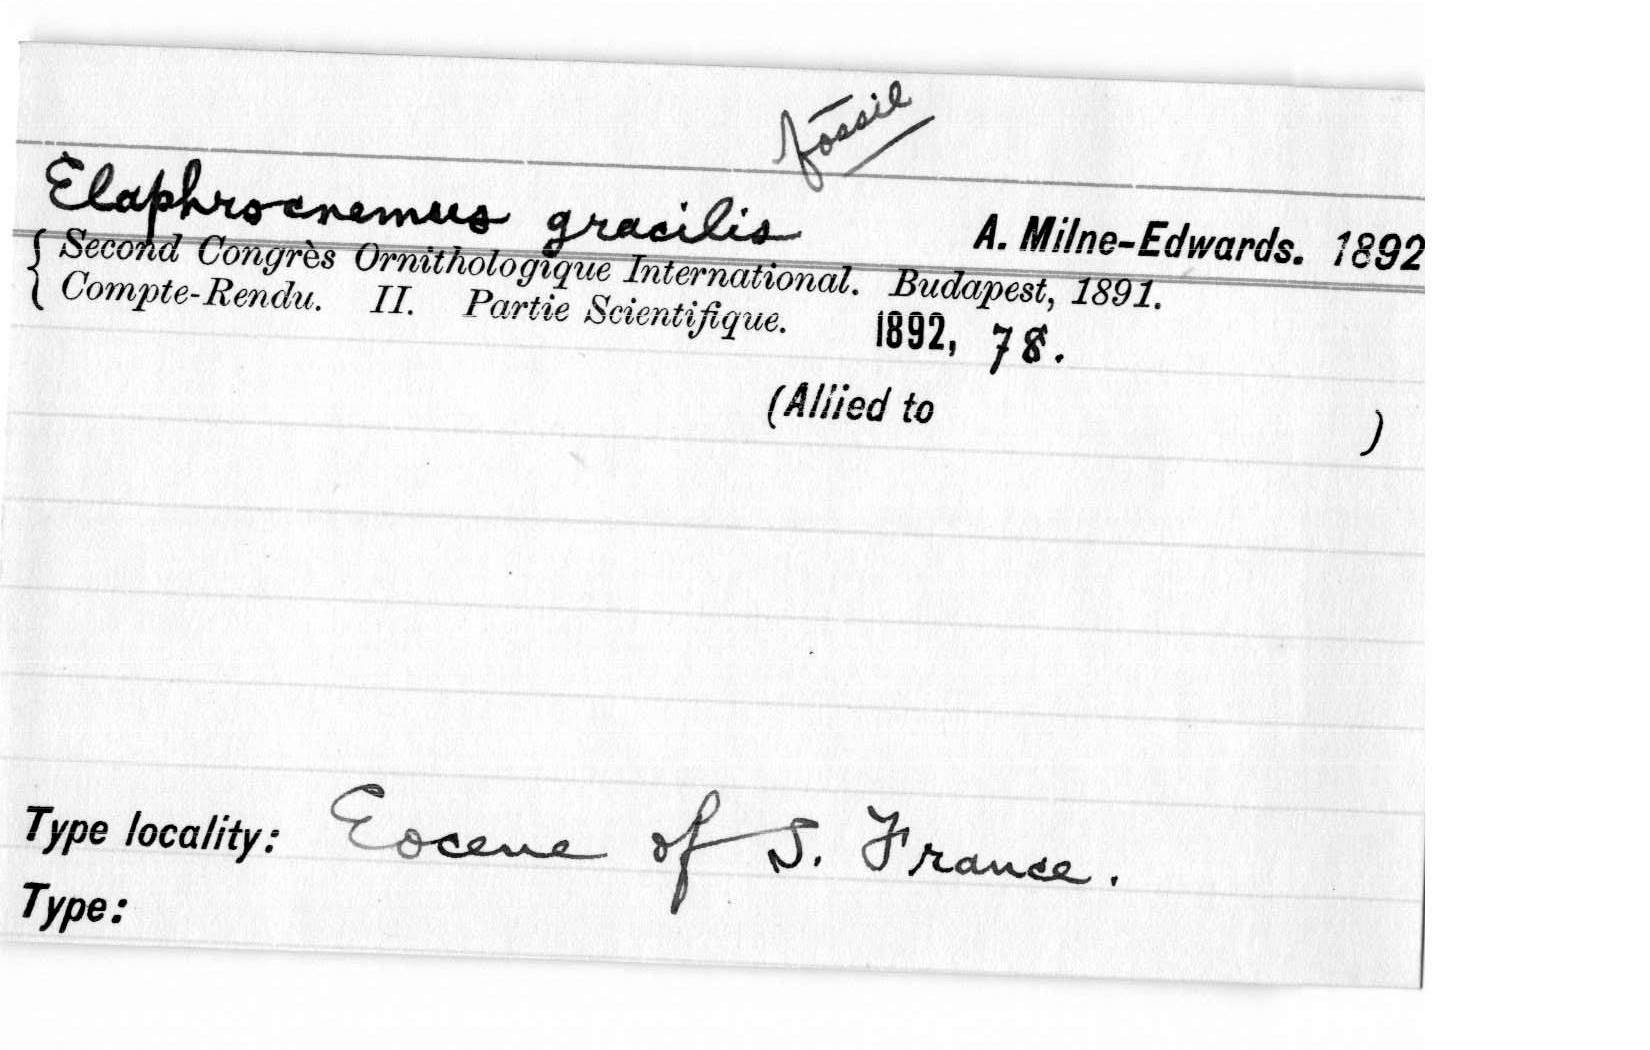 fossil
Elaphrocnemus gracilis A. Milne-Edwards. 1892
{ Second Congrès Ornithologique International. Budapest, 1891.
Compte-Rendu. II. Partie Scientifique. 1892, 78.
(Allied to )
Type locality: Eocene of S. France.
Type: